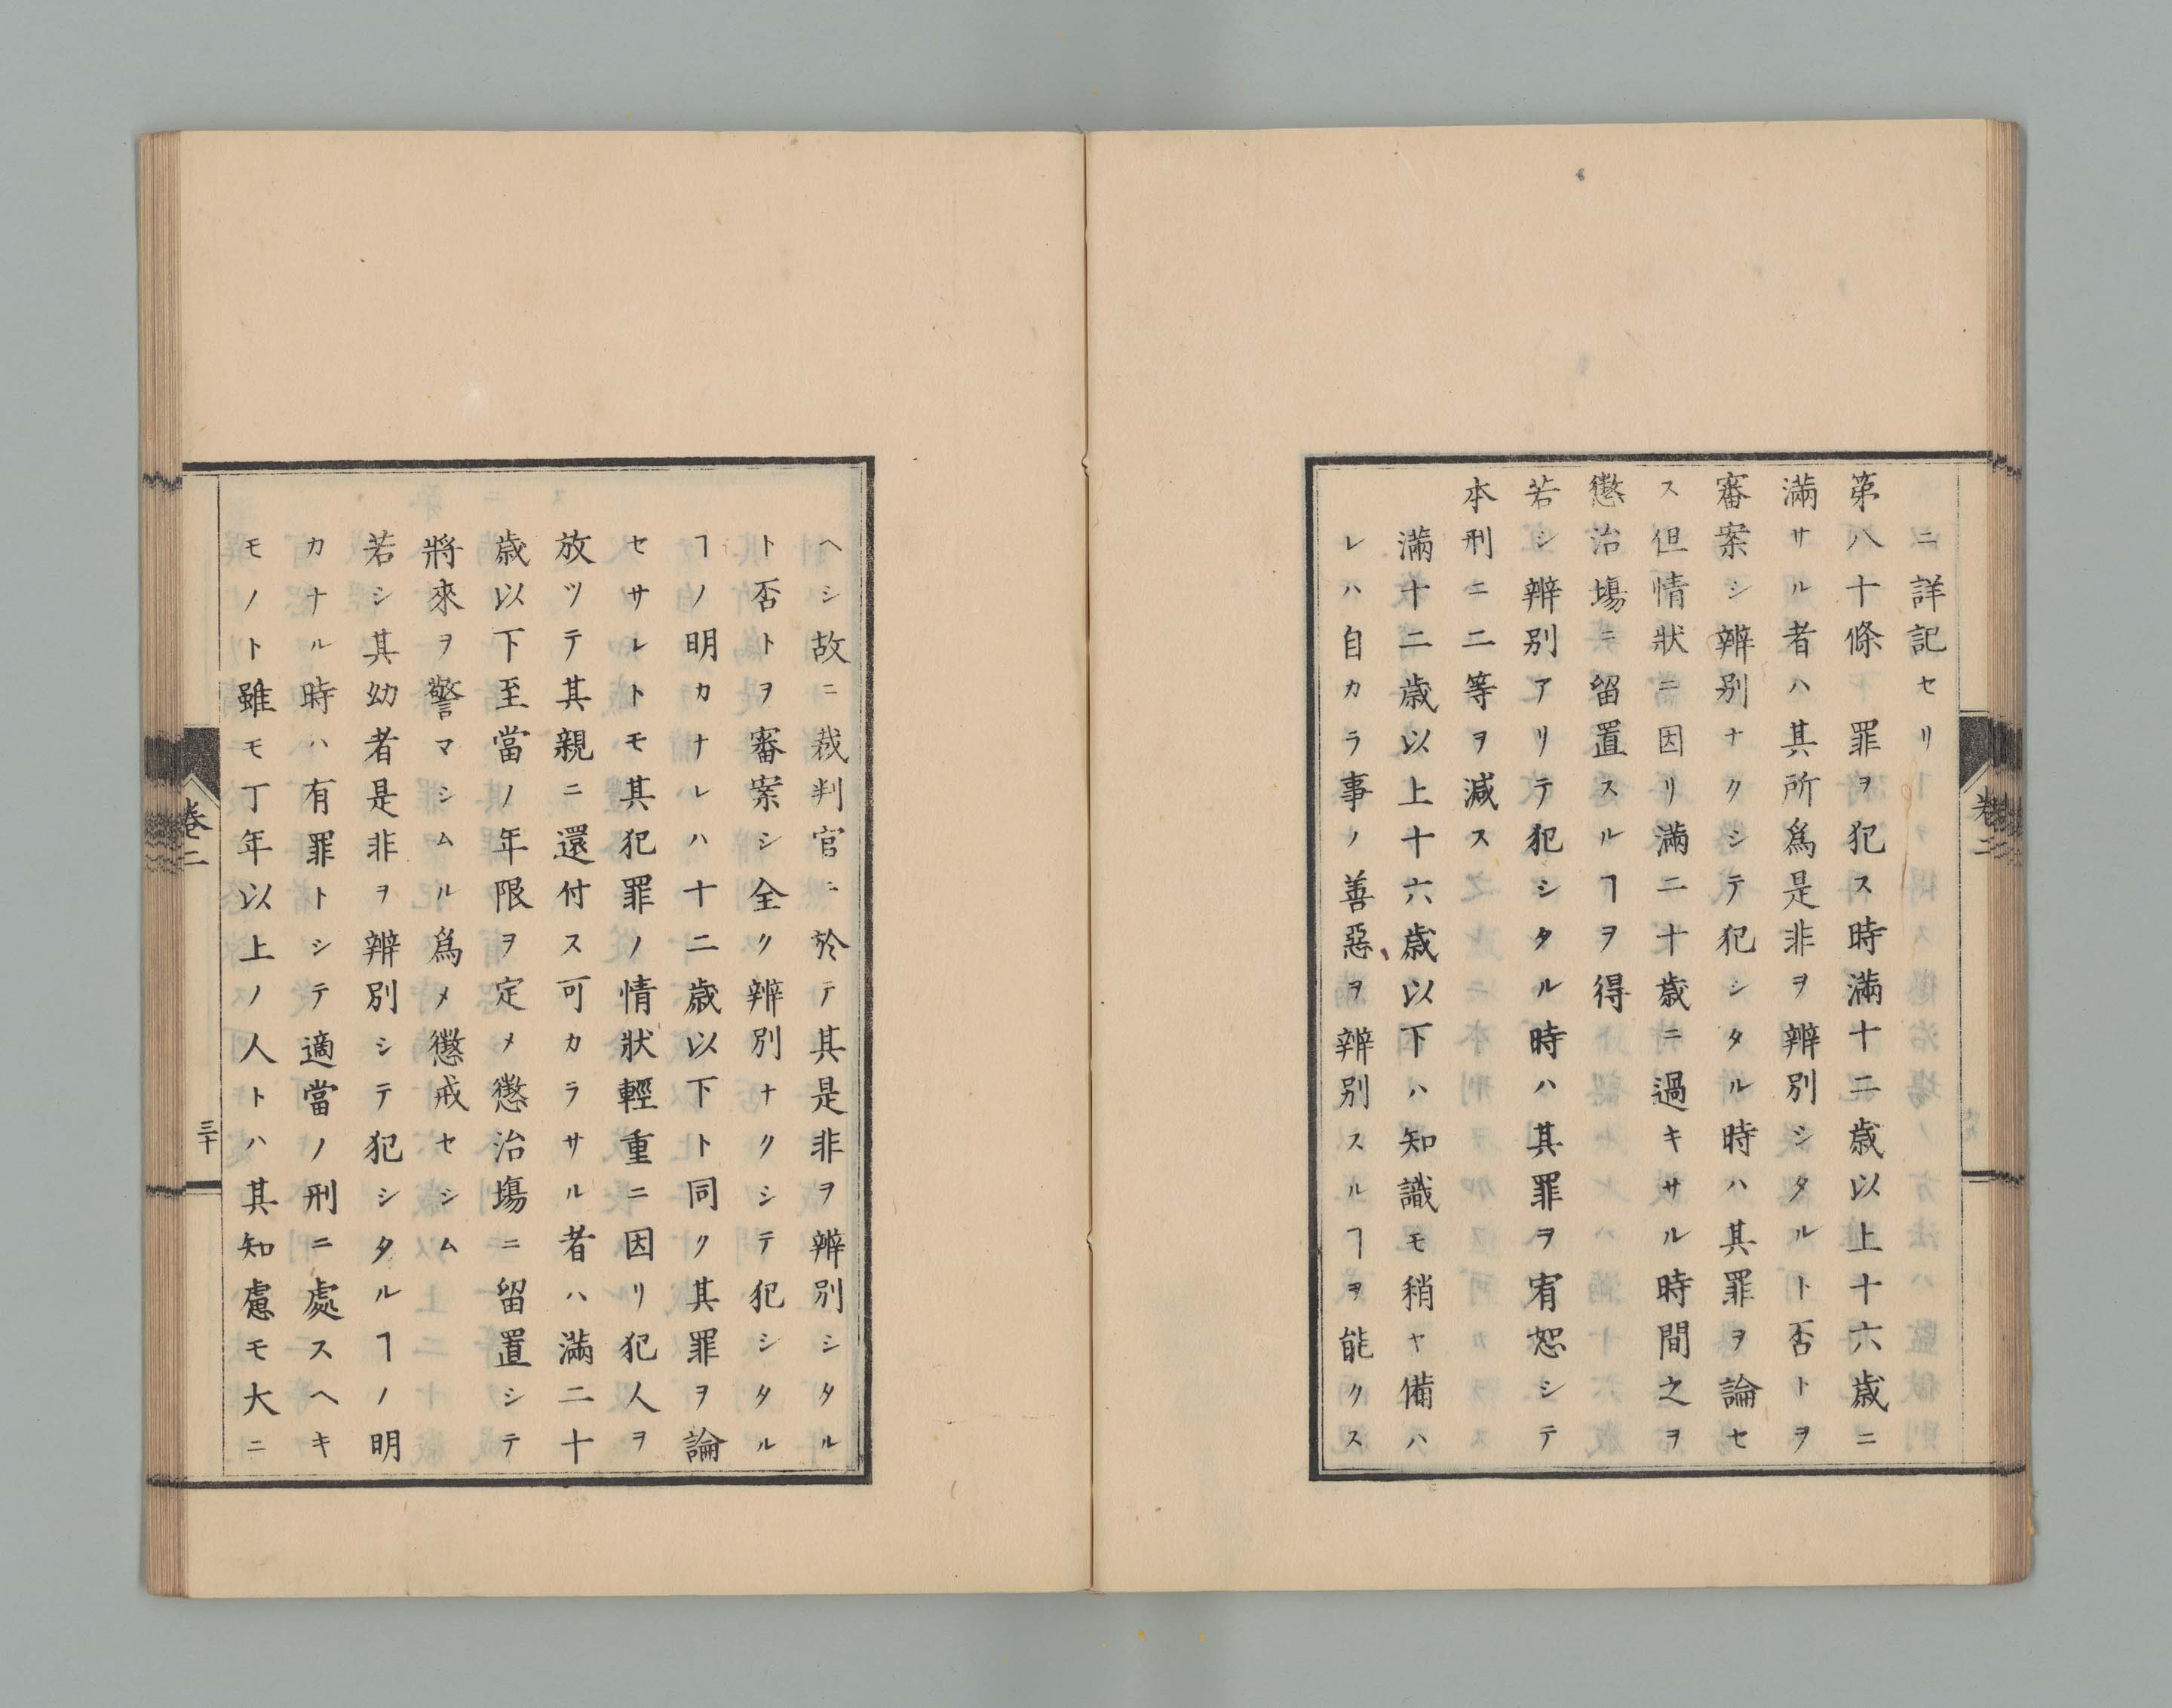 ニ詳記セリ
第八十條 罪ヲ犯ス時滿十二歳以上十六歳ニ
滿サル者ハ其所爲是非ヲ辨別シタルト否トヲ
審案シ辨別ナクシテ犯シタル時ハ其罪ヲ論セ
ス但情狀ニ因リ滿二十歳ニ過キサル時間之ヲ
懲治塲ニ留置スルヿヲ得
若シ辨別アリテ犯シタル時ハ其罪ヲ宥恕シテ
本刑ニ二等ヲ減ス
滿十二歳以上十六歳以下ハ知識モ稍ヤ備ハ
レハ自カラ事ノ善惡ヲ辨別スルヿヲ能クス
ヘシ故ニ裁判官ニ於テ其是非ヲ辨別シタル
ト否トヲ審案シ全ク辨別ナクシテ犯シタル
ヿノ明カナレハ十二歳以下ト同ク其罪ヲ論
セサレトモ其犯罪ノ情狀輕重ニ因リ犯人ヲ
放ツテ其親ニ還付ス可カラサル者ハ滿二十
歳以下至當ノ年限ヲ定メ懲治塲ニ留置シテ
將來ヲ警マシムル爲メ懲戒セシム
若シ其幼者是非ヲ辨別シテ犯シタルヿノ明
カナル時ハ有罪トシテ適當ノ刑ニ處スヘキ
モノト雖モ丁年以上ノ人トハ其知慮モ大ニ
卷二
三十